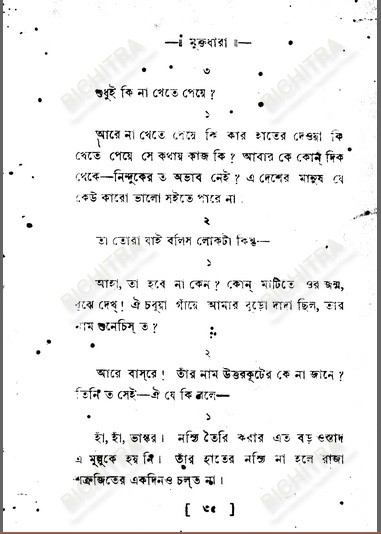 মুক্তধারা
৩
শুধুই কি না খেতে পেয়ে ?
১
আরে না খেতে পেয়ে কি কার হাতের দেওয়া কি
খেতে পেয়ে সে কথায় কাজ কি ? আবার কে কোন্ দিক
থেকে—নিন্দুকের ত অভাব নেই ? এ দেশের মানুষ যে
কেউ কারো ভালো সইতে পারে না
২
তা তোরা যাই বলিস লোকটা কিন্তু—
১
আহা, তা হবে না কেন ? কোন্ মাটিতে ওর জন্ম,
বুঝে দেখ্ ! ঐ চবুয়া গাঁয়ে আমার বুড়ো দাদা ছিল, তার
নাম শুনেচিস্ ত ?
২
আরে বাস্‌রে ! তাঁর নাম উত্তরকূটের কে না জানে ?
তিনি ত সেই—ঐ যে কি বলে—
১
হাঁ, হাঁ, ভাস্কর। নস্যি তৈরি করার এত বড় ওস্তাদ
এ মুল্লুকে হয় নি। তাঁর হাতের নস্যি না হলে রাজা
শত্রুজিতের একদিনও চল্‌ত না।
[ ৩৫ ]
BICHITRA